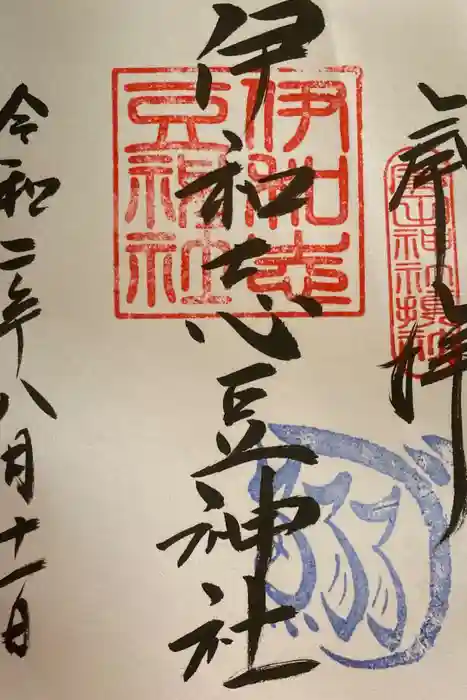 奉拝
伊和志豆神社
伊和志豆神社
令和二年八月十一日